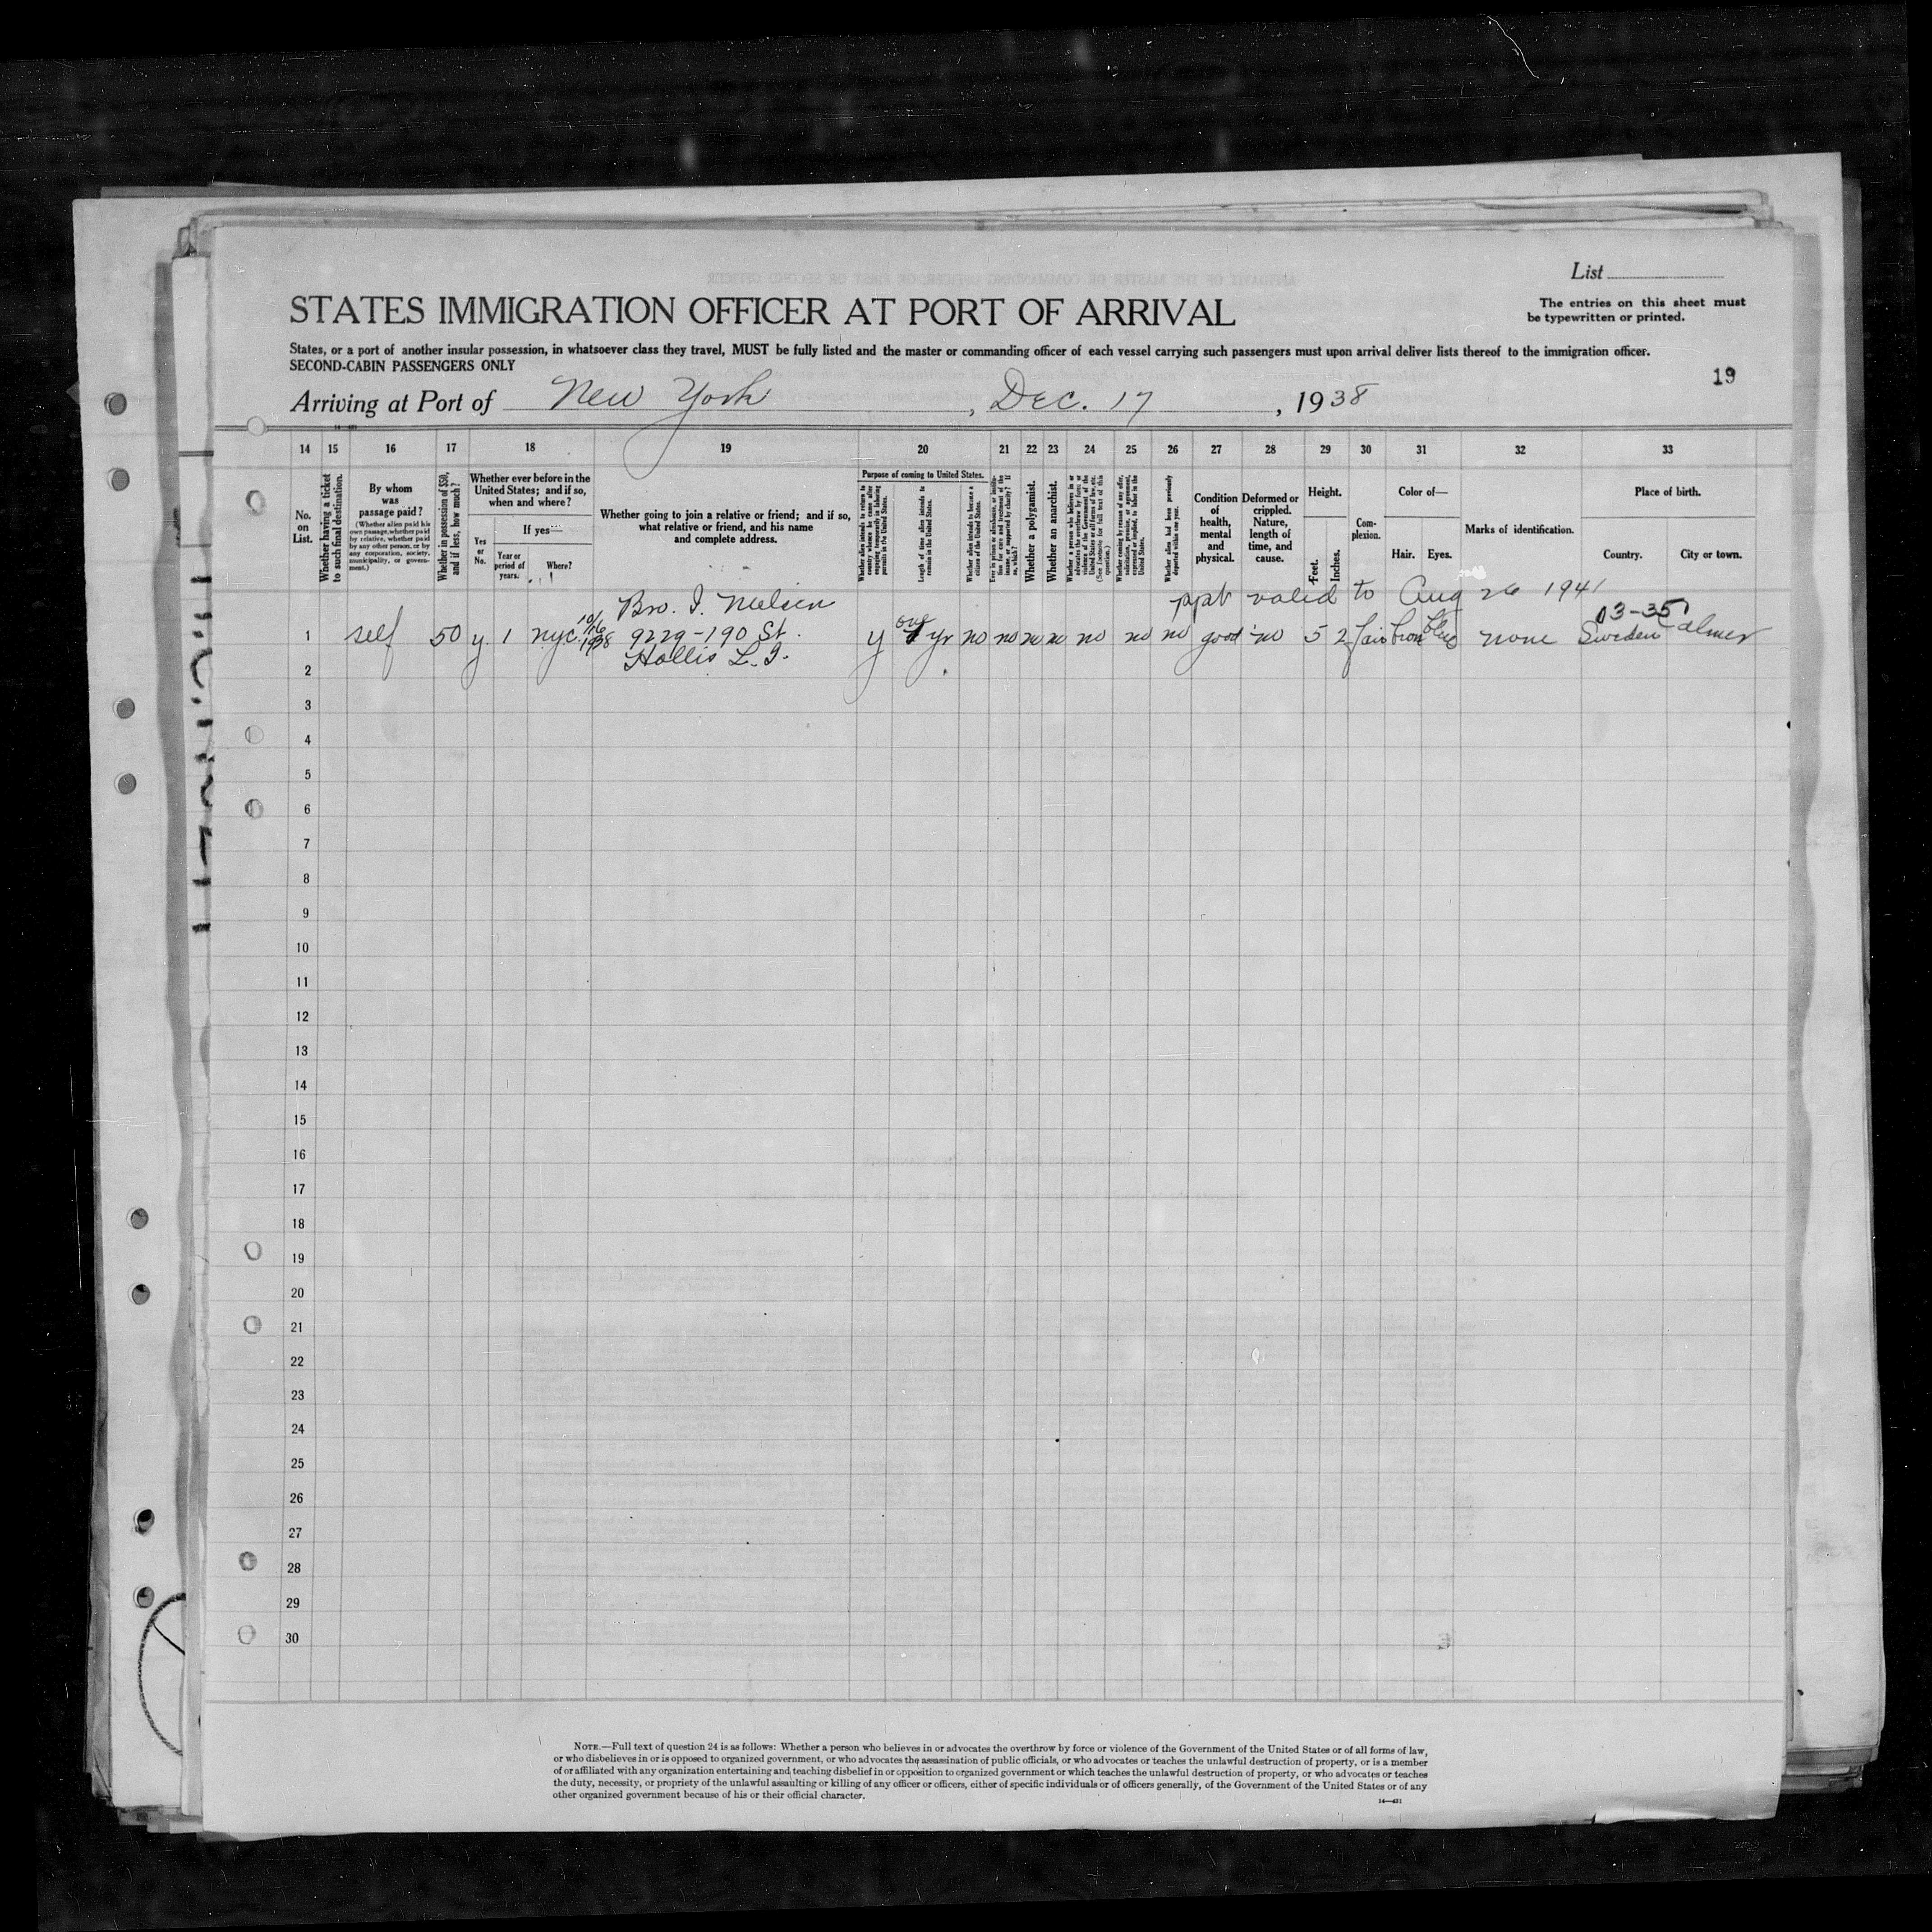 List
STATES IMMIGRATION OFFICER AT PORT OF ARRIVAL
The entries on this sheet must
be typewritten or printed.
States, or a port of another insular possession, in whatsoever class they travel, MUST be fully listed and the master or commanding officer of each vessel carrying such passengers must upon arrival deliver lists thereof to the immigration officer.
SECOND-CABIN PASSENGERS ONLY
19
Arriving at Port of New York, Dec. 17, 1938
14 15 16 17 18 19 20 21 22 23 24 25 26 27 28 29 30 31 32 33
No. on List.
Whether having a ticket to such final destination.
By whom was passage paid?
(Whether alien paid his own passage, whether paid by relative, whether paid by any other person, or by any corporation, society, municipality, or government.)
Whether in possession of $50, and if less, how much?
Whether ever before in the United States; and if so, when and where?
Yes or No.
If yes—
Year or period of years.
Where?
Whether going to join a relative or friend; and if so, what relative or friend, and his name and complete address.
Purpose of coming to United States.
Whether alien intends to return to country whence he came after engaging temporarily in laboring pursuits in the United States.
Length of time alien intends to remain in the United States.
Whether alien intends to become a citizen of the United States.
Ever in prison or almshouse, or institution for care and treatment of the insane, or supported by charity? If so, which?
Whether a polygamist.
Whether an anarchist.
Whether a person who believes in or advocates the overthrow by force or violence of the Government of the United States or all forms of law, etc. (See footnote for full text of this question.)
Whether coming by reason of any offer, solicitation, promise, or agreement, expressed or implied, to labor in the United States.
Whether alien had been previously deported within one year.
Condition of health, mental and physical.
Deformed or crippled. Nature, length of time, and cause.
Height.
Feet. Inches.
Complexion.
Color of—
Hair. Eyes.
Marks of identification.
Place of birth.
Country. City or town.
ppt valid to Aug 26 1941
Bro. I. Nielsen
10/6
03-35
1 self 50 y. 1 nyc. 1938 9229-190 St. y 1 yr no no no no no no no good no 5 2 fair brown blue none Sweden Calmer
Hollis L. I.
2
3
4
5
6
7
8
9
10
11
12
13
14
15
16
17
18
19
20
21
22
23
24
25
26
27
28
29
30
NOTE.—Full text of question 24 is as follows: Whether a person who believes in or advocates the overthrow by force or violence of the Government of the United States or of all forms of law,
or who disbelieves in or is opposed to organized government, or who advocates the assassination of public officials, or who advocates or teaches the unlawful destruction of property, or is a member
of or affiliated with any organization entertaining and teaching disbelief in or opposition to organized government or which teaches the unlawful destruction of property, or who advocates or teaches
the duty, necessity, or propriety of the unlawful assaulting or killing of any officer or officers, either of specific individuals or of officers generally, of the Government of the United States or of any
other organized government because of his or their official character.
14—481